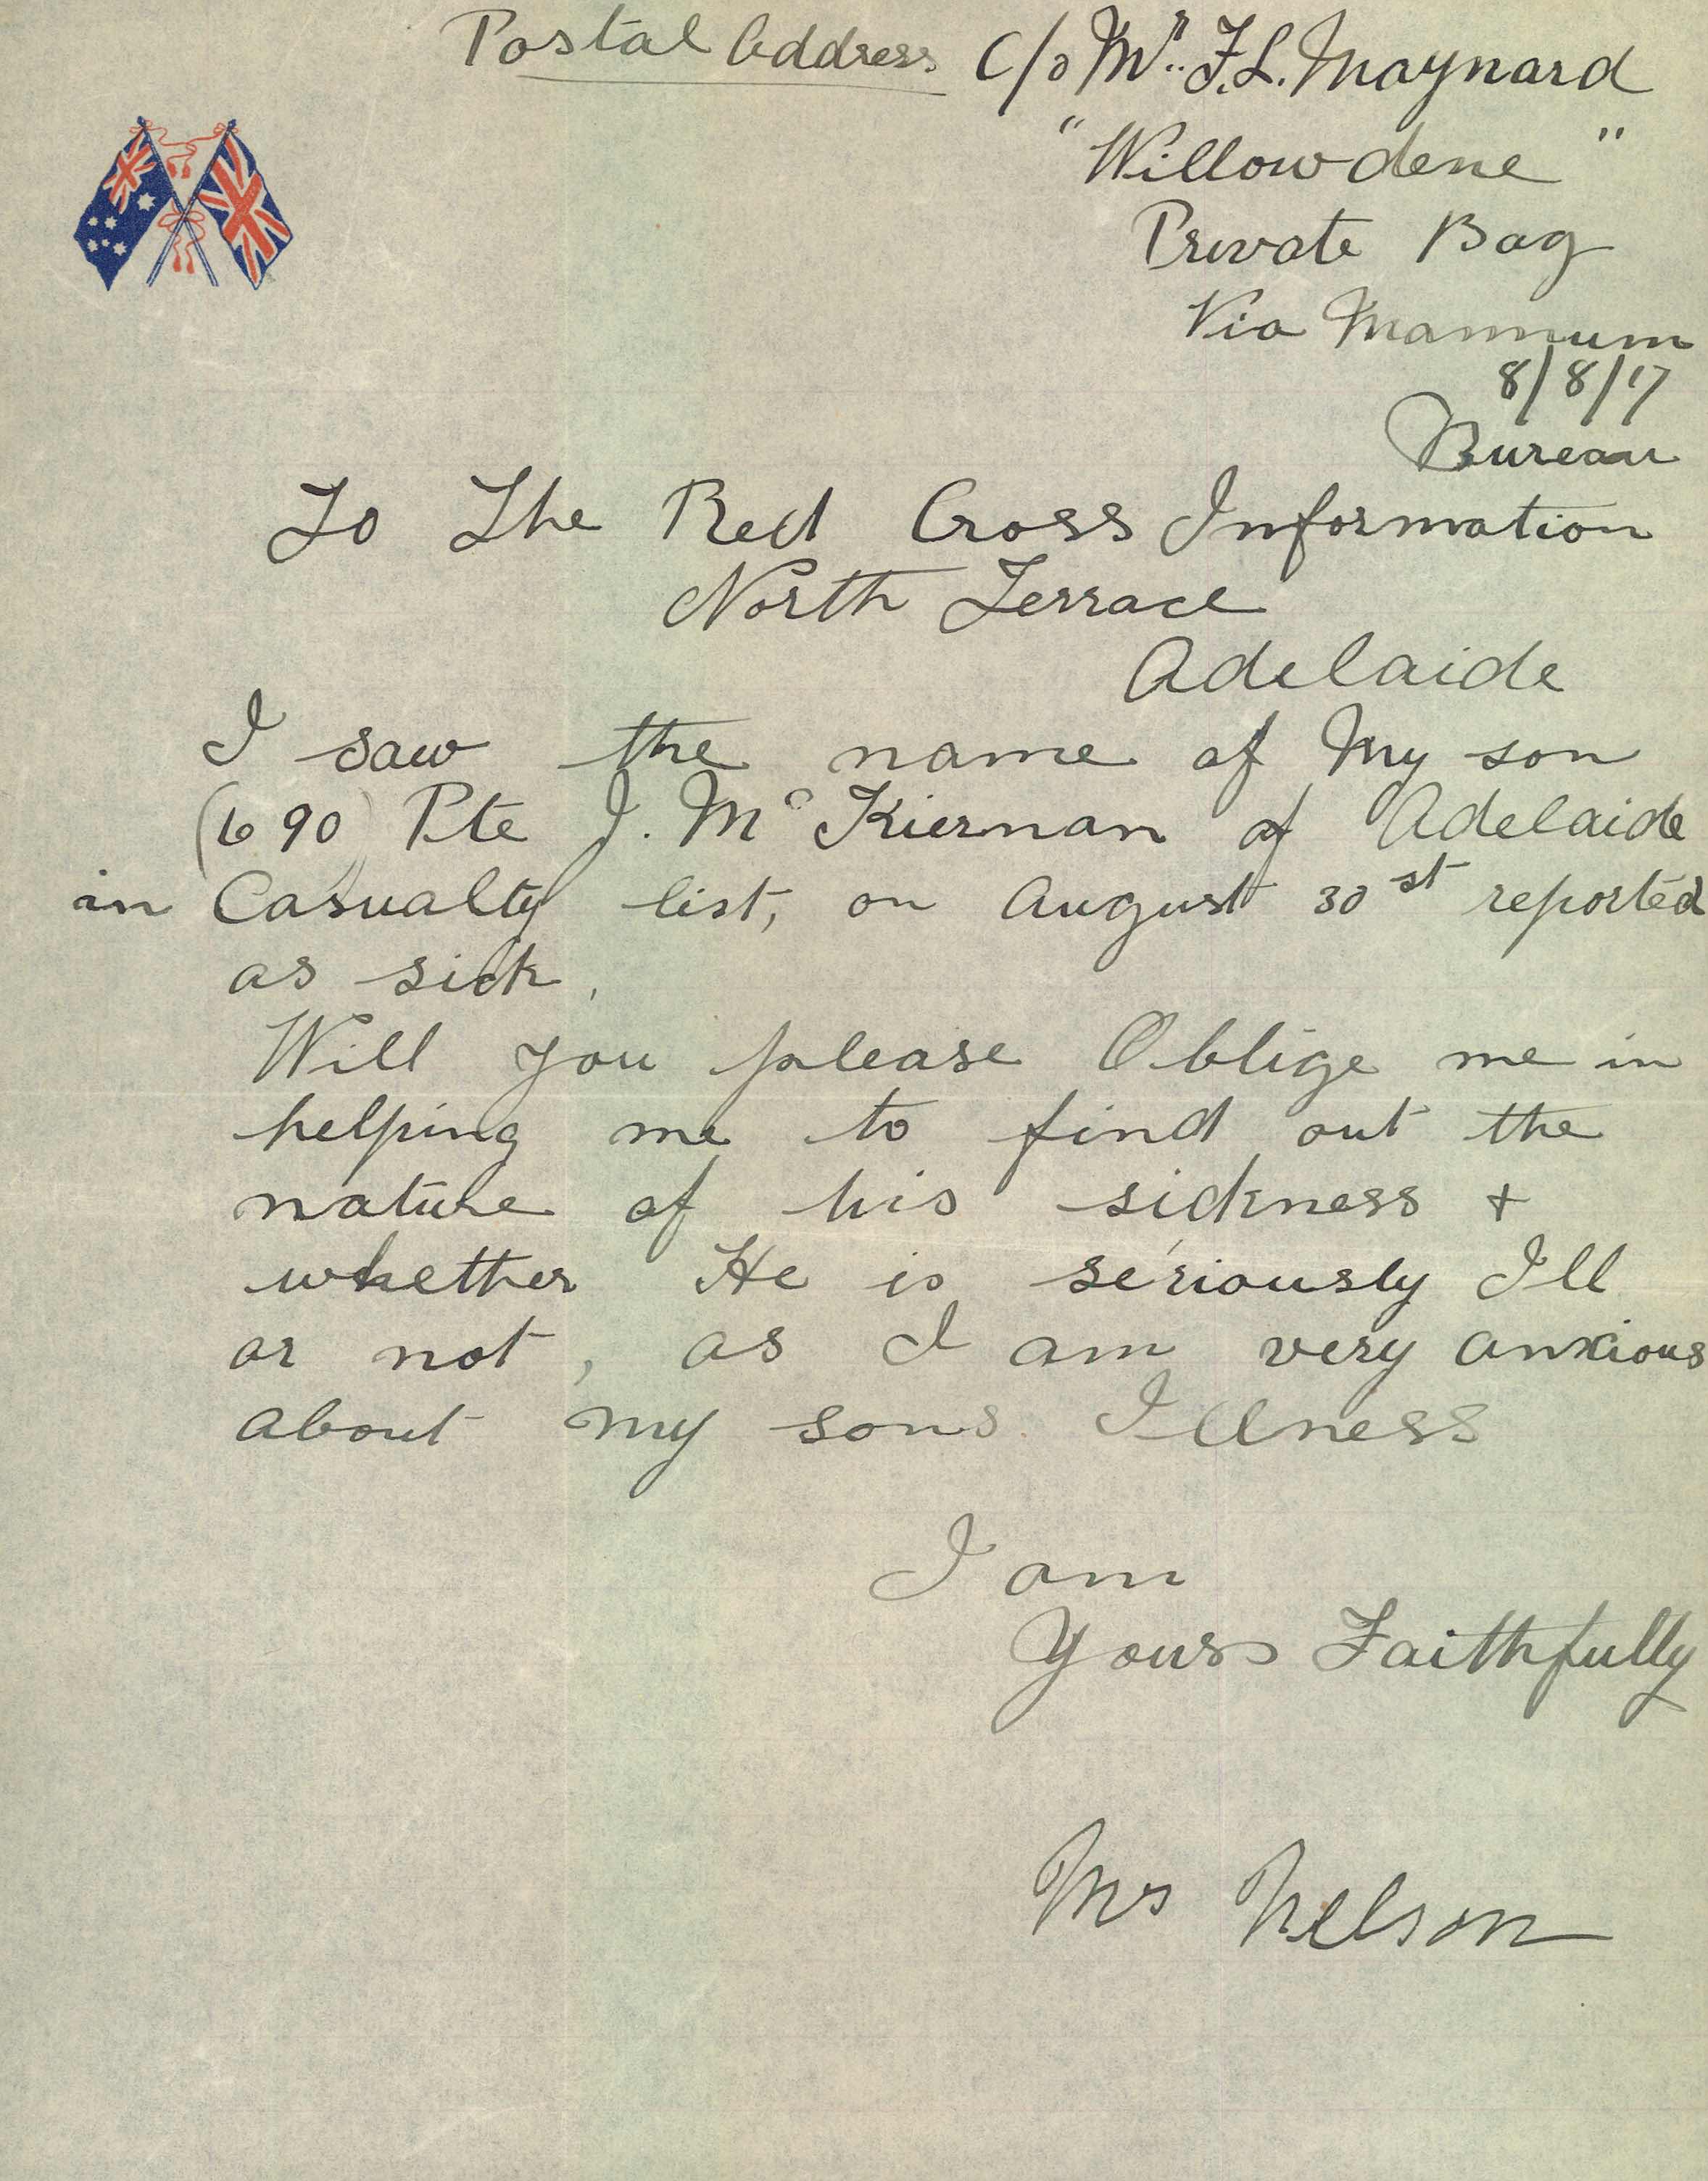 Postal Address C/o Mr. F.L. Maynard
"Willowdene"
Private Bag
Via Mannum
8/8/17
Bureau
To The Red Cross Information
North Terrace
Adelaide
I saw the name of My son
(690) Pte J. Mc Kiernan of Adelaide
in Casualty list, on August 30st reported
as sick.
Will you please Oblige me in
helping me to find out the
nature of his sickness &
whether He is seriously Ill
or not, as I am very anxious
about my sons Illness
I am
Yours Faithfully
Mrs Nelson